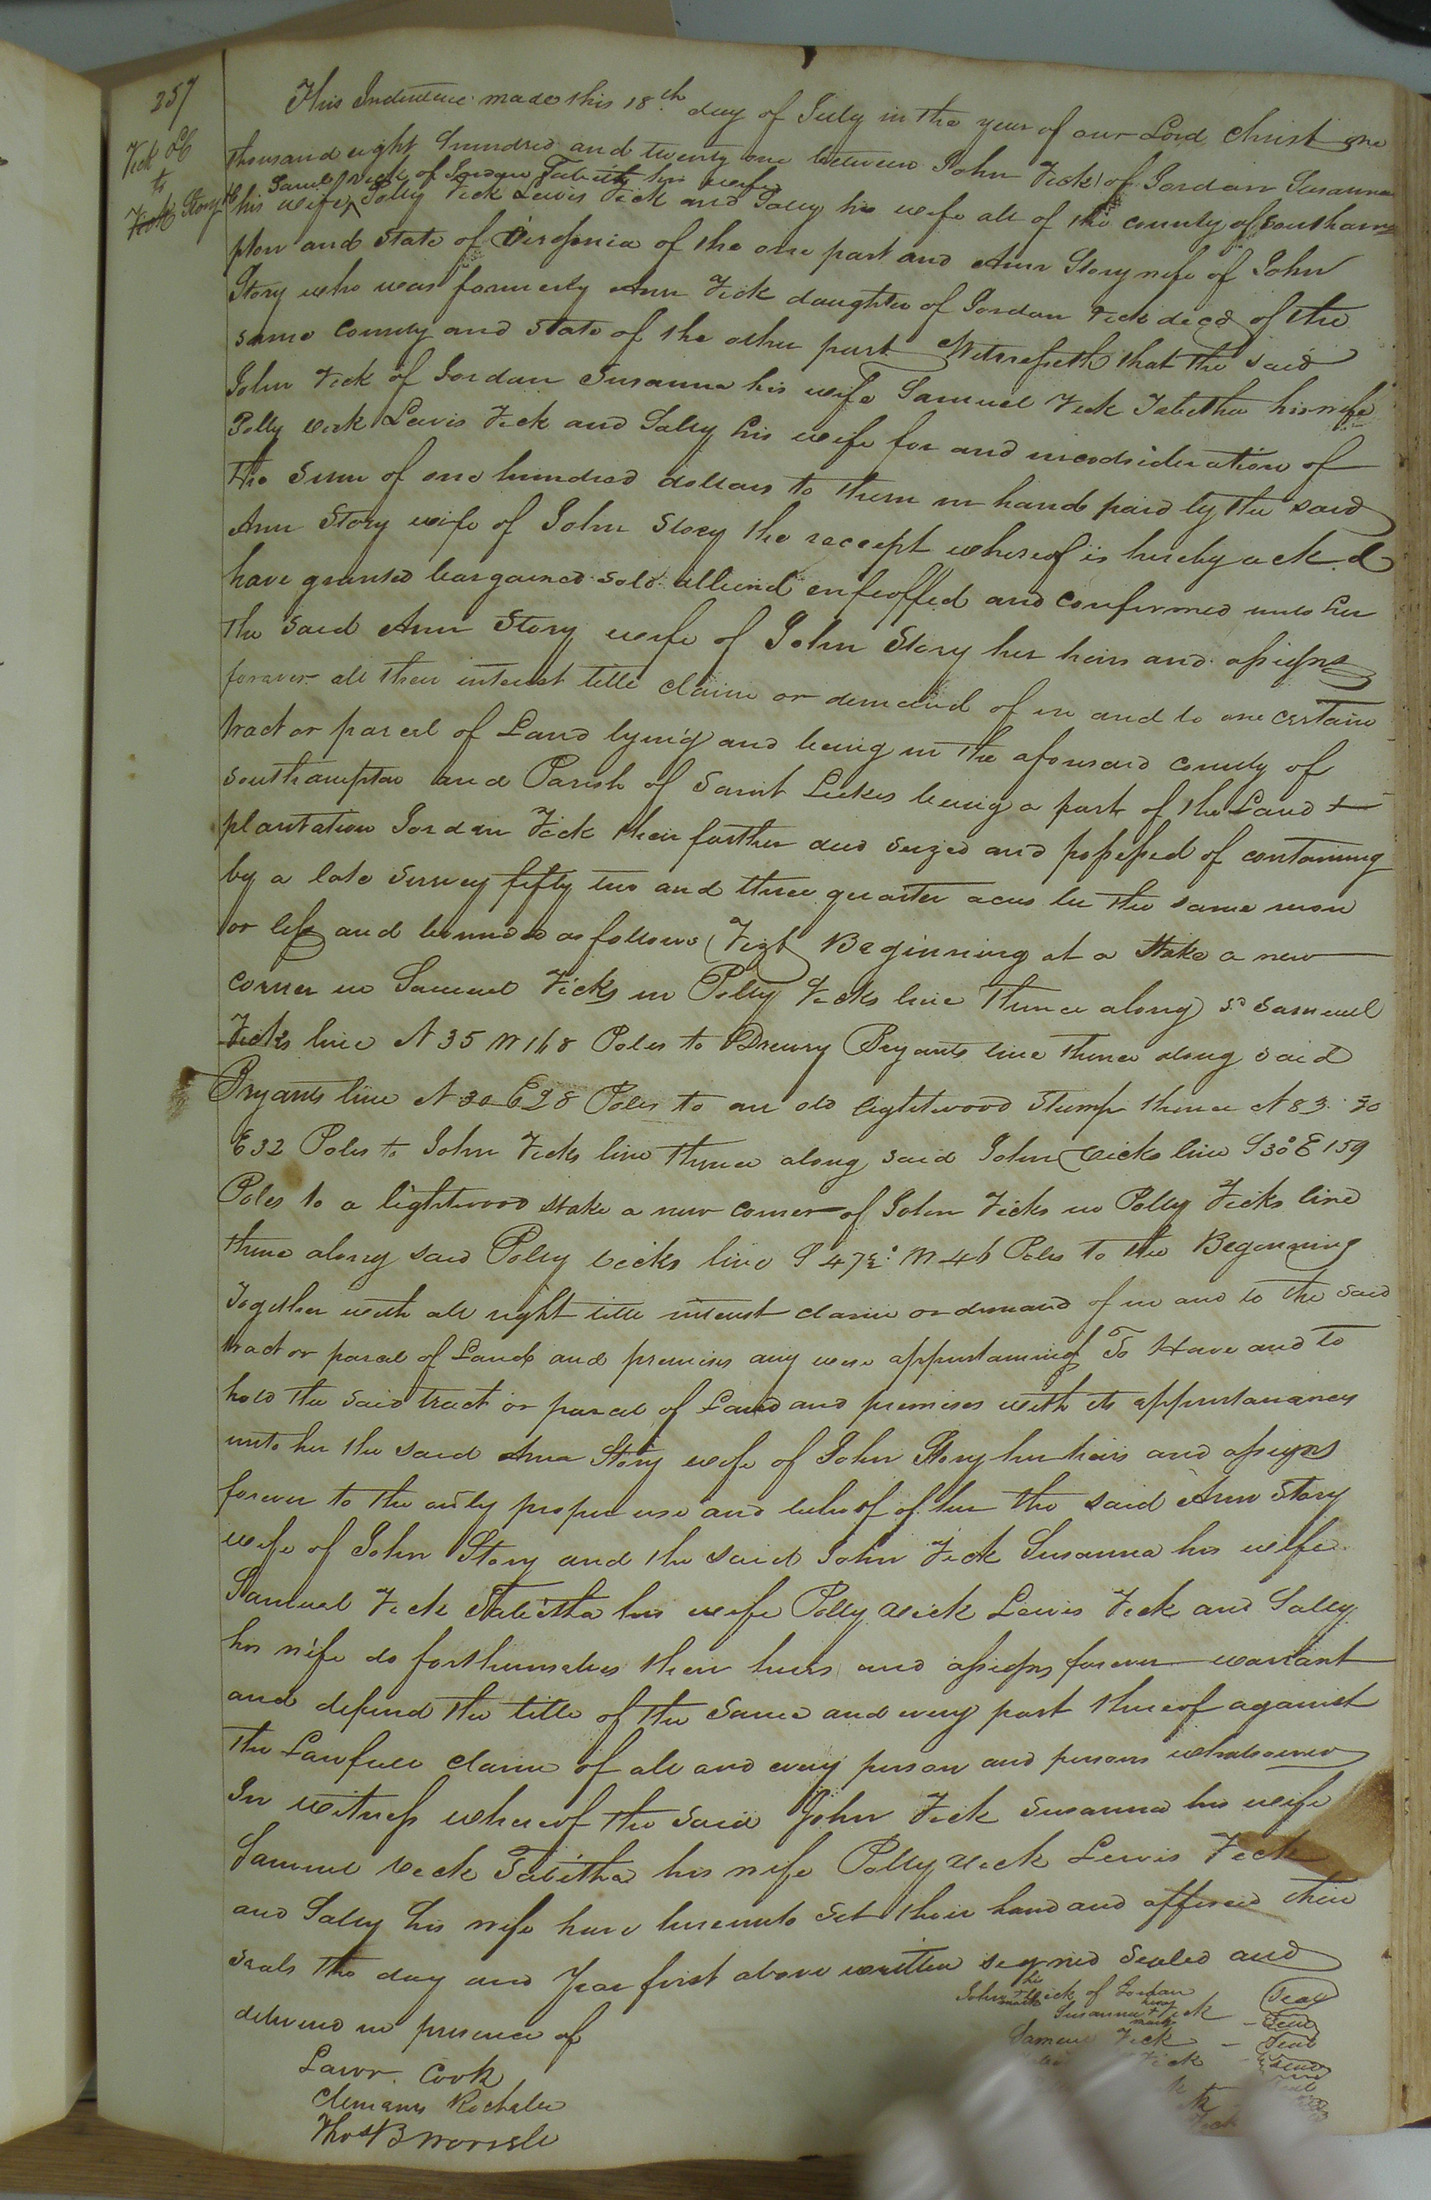 257
Vick &c
to
Vick Story &c
This Indenture made this 18th day of July in the year of our Lord Christ one
thousand eight hundred and twenty one between John Vick of Jordan Susanna
Saml Vick of Jordan Tabitha his wife
his wife ^ Polly Vick Lewis Vick and Sally his wife all of the county of Southam
pton and State of Virginia of the one part and Ann Story wife of John
Story who was formerly Ann Vick daughter of Jordan Vick decd of the
same County and State of the other part Witnesseth that the said
John Vick of Jordan Susanna his wife Samuel Vick Tabitha his wife
Polly Vick Lewis Vick and Sally his wife for and in considideration of
the Sum of one hundred dollars to them in hand paid by the said
Ann Story wife of John Story the receept whereof is hereby ackd
have granted bargained sold aliend enfeoffed and confirmed unto her
the said Ann Story wife of John Story her heirs and assigns
foraver all their interest title claim or demand of in and to one certain
tract or parcel of Land lying and being in the aforesaid county of
Southampton and Parish of Saint Lukes being a part of the Land &
plantation Jordan Vick their farther died seized and possessed of containing
by a late survey fifty two and three quarter acres be the same more
or less and bounded as follows (Vizt) Beginning at a Stake a new
corner in Samuel Vicks in Polly Vicks line thence along sd Samuel
Vicks line N 35 W 168 Poles to Drewry Bryants line thence along said
Bryants line N 30 E 28 Poles to an old lightwood Stump thence N 83 30
E 32 Poles to John Vicks line thence along said John Vicks line S 30° E 159
Poles to a lightwood stake a new corner of John Vicks in Polly Vicks line
thence along said Polly Vicks line S 47½° W 46 Poles to the Beginning
Together with all right title interest claim or demand of in and to the said
tract or parcel of Land and premises any wise appurtaining To Have and to
hold the said tract or parcel of Land and premises with its appurtanances
unto her the said Ann Story wife of John Story her heirs and assigns
forever to the only proper use and behoof of her the said Ann Story
wife of John Story and the said John Vick Susanna his wife
Samuel Vick Tabitha his wife Polly Vick Lewis Vick and Sally
his wife do for themselves their heirs and assigns forever warrant
and defend the title of the same and every part thereof against
the Lawfull claim of all and every person and persons whatsoever
In witness whereof the said John Vick Susanna his wife
Samuel Vick Tabitha his wife Polly Vick Lewis Vick
and Sally his wife have hereunto set their hand and affixed their
seals the day and Year first above written signed Sealed and
delivered in presence of
his
John + Vick of Jordan Seal
mark
her
Susanna + Vick - Seal
mark
Samuel Vick - Seal
Vick - Seal
Vick
Lawr. Cook
Clemans Rochelle
Thos B Worrell